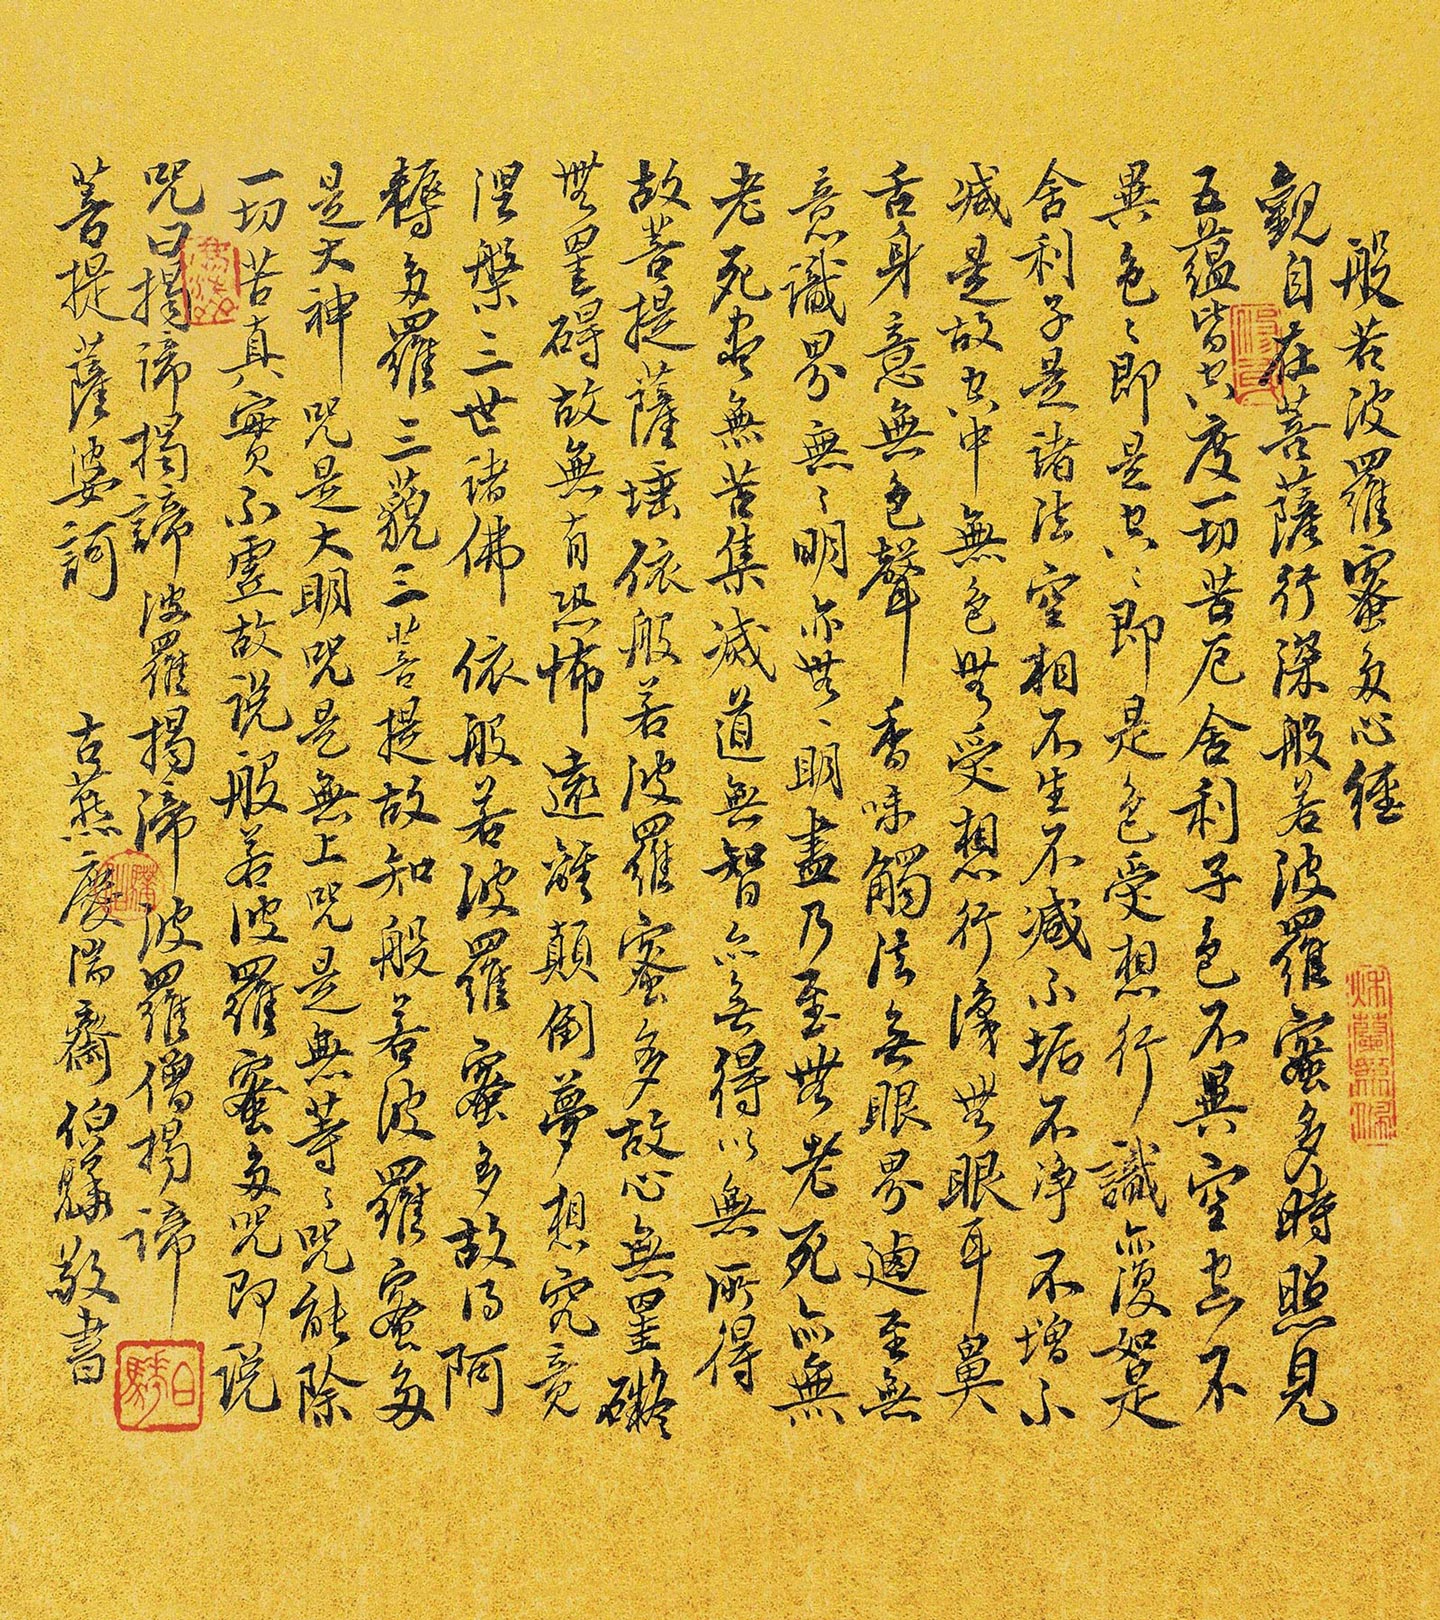 般若波羅蜜多心經
觀自在菩薩行深般若波羅蜜多時照見
五蘊皆空度一切苦厄舍利子色不異空空不
異色〻即是空〻即是色受想行識亦復如是
舍利子是諸法空相不生不滅不垢不净不增不
減是故空中無色無受想行識無眼耳鼻
舌身意無色聲香味觸法無眼界迺至無
意識界無〻明亦無〻明盡乃至無老死亦無
老死盡無苦集滅道無智亦無得以無所得
故菩提薩埵依般若波羅蜜多故心無罣礙
無罣碍故無有恐怖遠離顛倒夢想究竟
涅槃三世諸佛依般若波羅蜜多故得阿
耨多羅三藐三菩提故知般若波羅蜜多
是大神咒是大明咒是無上咒是無等〻咒能除
一切苦真實不虛故說般若波羅蜜多咒即說
咒曰揭諦揭諦波羅揭諦波羅僧揭諦
菩提薩婆訶 古燕慶瑞齋伯敬書